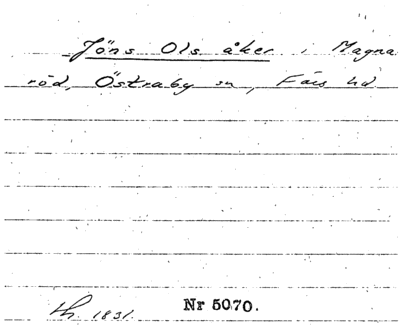 Jöns Ols åker i Magna
röd, Östraby sn, Färs hd
lh. 1831.
Nr 5070.